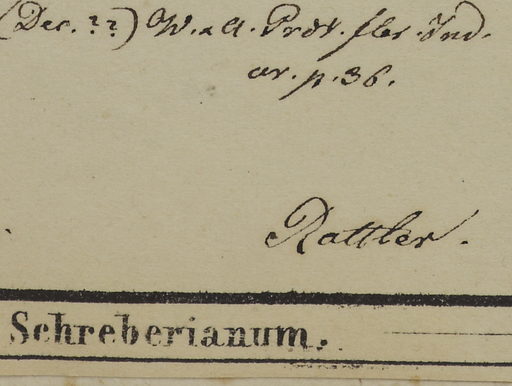 (Dec. ??) W. & A. Prdr. flor. Ind.
or. p. 36.
Rottler.
Schreberianum.